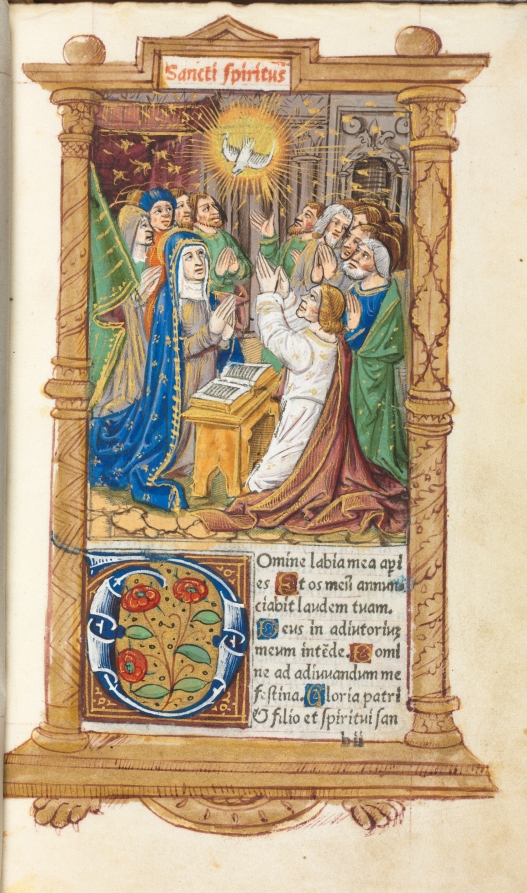 Sancti spiritus
Omine labia mea aṗi
es Et os meū annun
ciabit laudem tuam.
Deus in adiutoriuʒ
meum intēde. Domi
ne ad adiuuandum me
festina. Gloria patri
& filio et spiritui san
b ii